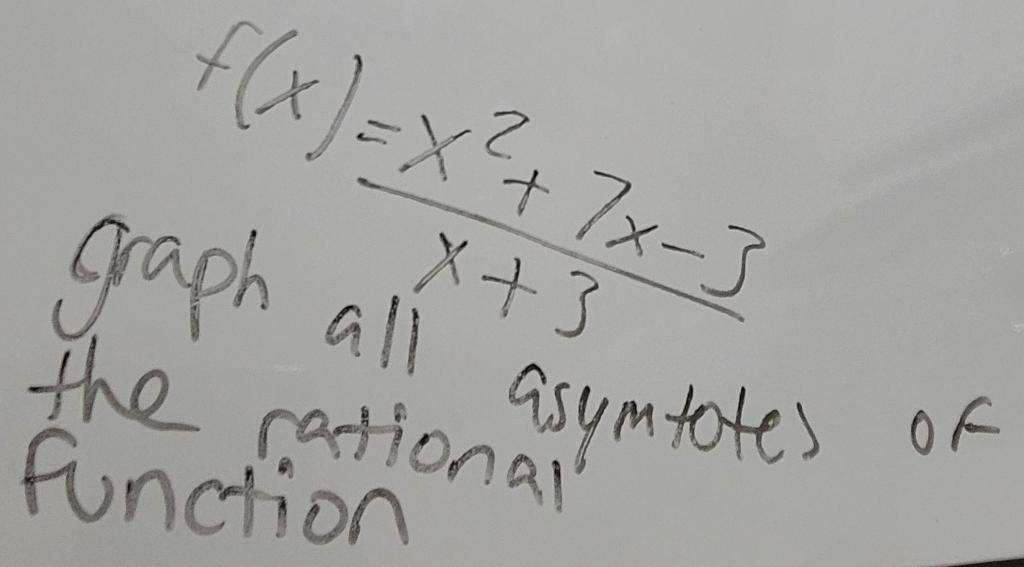 f(x) = x² + 7x - 3
x + 3
graph all asymtotes of
the rational
function